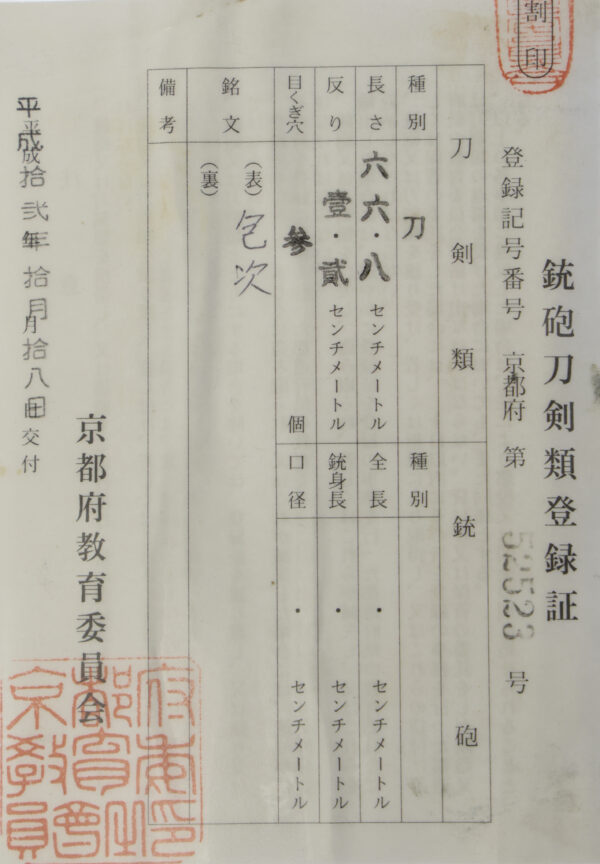 割印
銃砲刀剣類登録証
登録記号番号 京都府 第 52523 号
刀剣類 銃砲
種別 刀 種別
長さ 六六・八 センチメートル 全長 ・ センチメートル
反り 壹・貳 センチメートル 銃身長 ・ センチメートル
目くぎ穴 参 個 口径 ・ センチメートル
銘文 (表) 包次
(裏)
備考
平成拾弐年拾月拾八日交付
京都府教育委員会